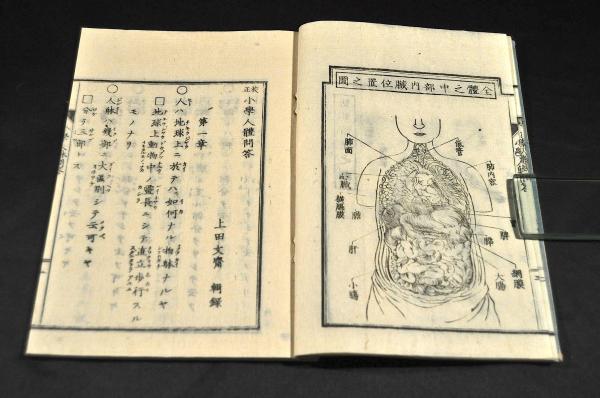 全體之中部内臓位置之圖
氣管
肺内面
肺面
臓
横膈膜
脾
肝
膵
網膜
大腸
小腸
校正
小學人體問答
上田文齋 輯録
第一章
○人ハ地球上ニ於テハ如何ナル物躰ナルヤ
□地球上動物中ノ靈長ニシテ直立歩行スル
モノナリ
○人躰ハ幾部ニ大區別シテ云可キヤ
□分テ三部トス